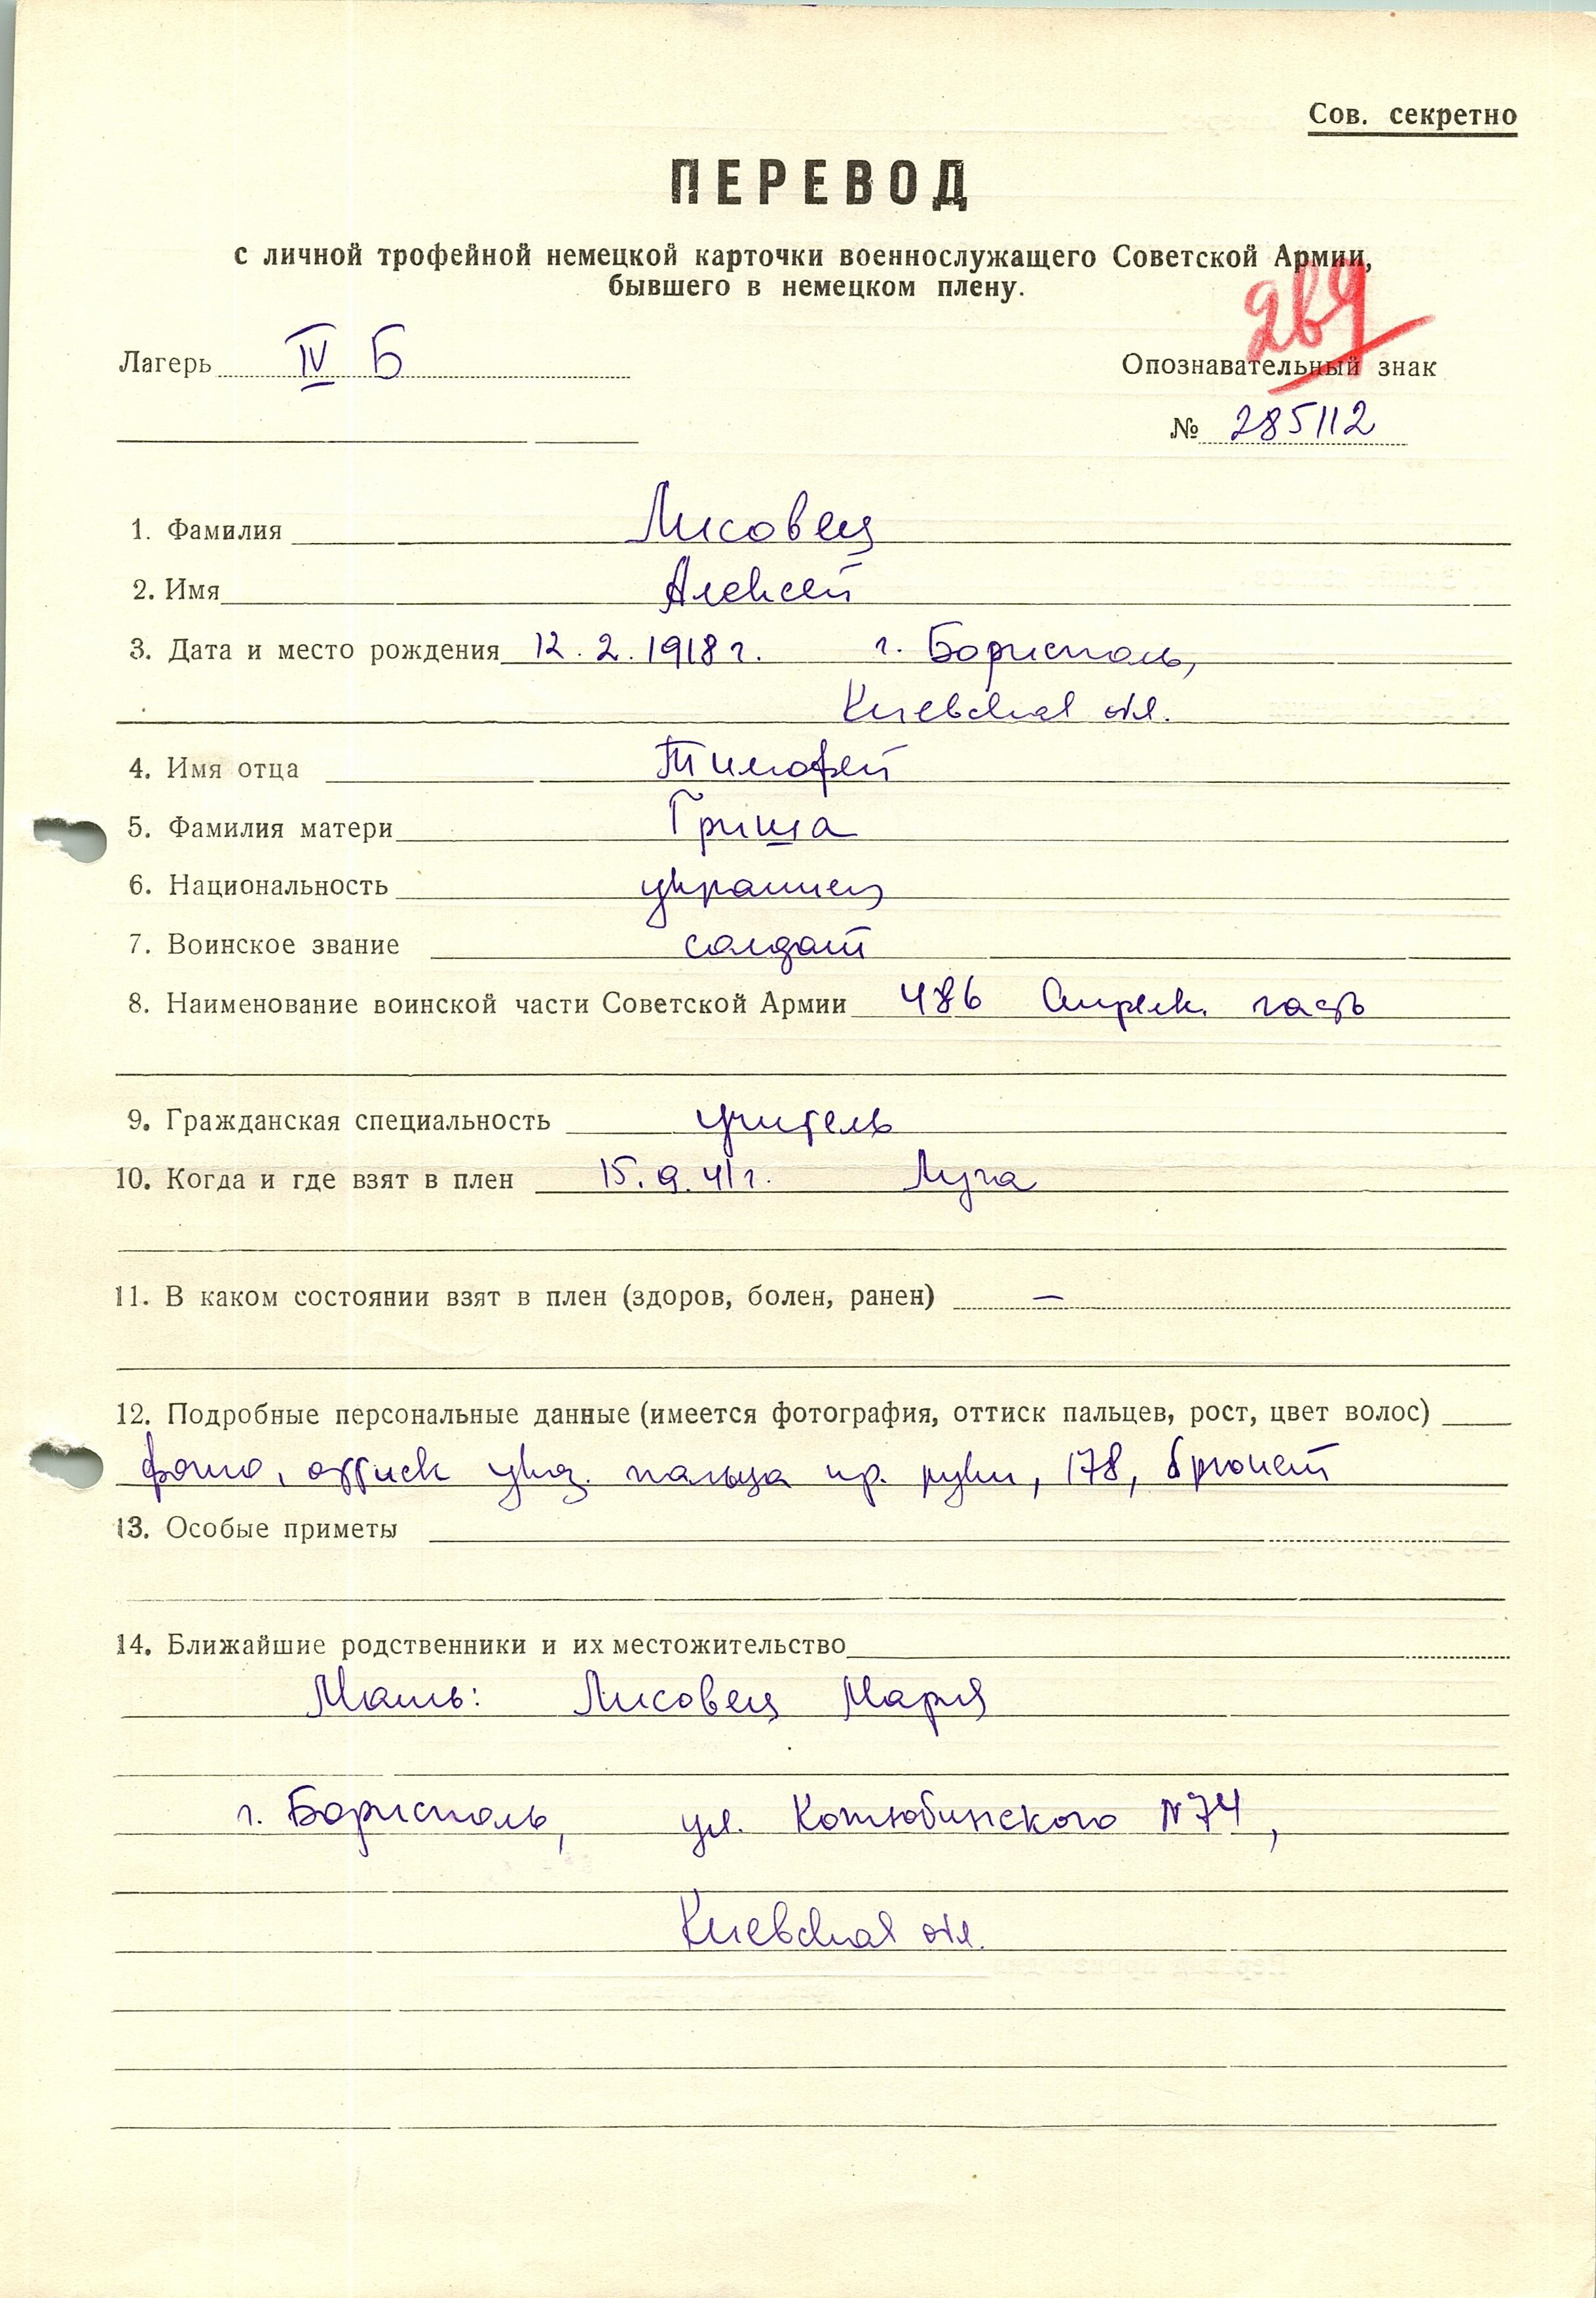 Сов. секретно
ПЕРЕВОД
с личной трофейной немецкой карточки военнослужащего Советской Армии,
бывшего в немецком плену.
Лагерь IV Б
Опознавательный знак
№ 285112
1. Фамилия Лисовец
2. Имя Алексей
3. Дата и место рождения 12.2.1918 г. г. Борисполь,
Киевская обл.
4. Имя отца Тимофей
5. Фамилия матери Гриша
6. Национальность украинец
7. Воинское звание солдат
8. Наименование воинской части Советской Армии 486 Стрелк. часть
9. Гражданская специальность учитель
10. Когда и где взят в плен 15.9.41 г. Луга
11. В каком состоянии взят в плен (здоров, болен, ранен) —
12. Подробные персональные данные (имеется фотография, оттиск пальцев, рост, цвет волос)
фото, оттиск указ. пальца пр. руки, 178, брюнет
13. Особые приметы
14. Ближайшие родственники и их местожительство
Мать: Лисовец Мария
г. Борисполь, ул. Котюбинского №74,
Киевская обл.